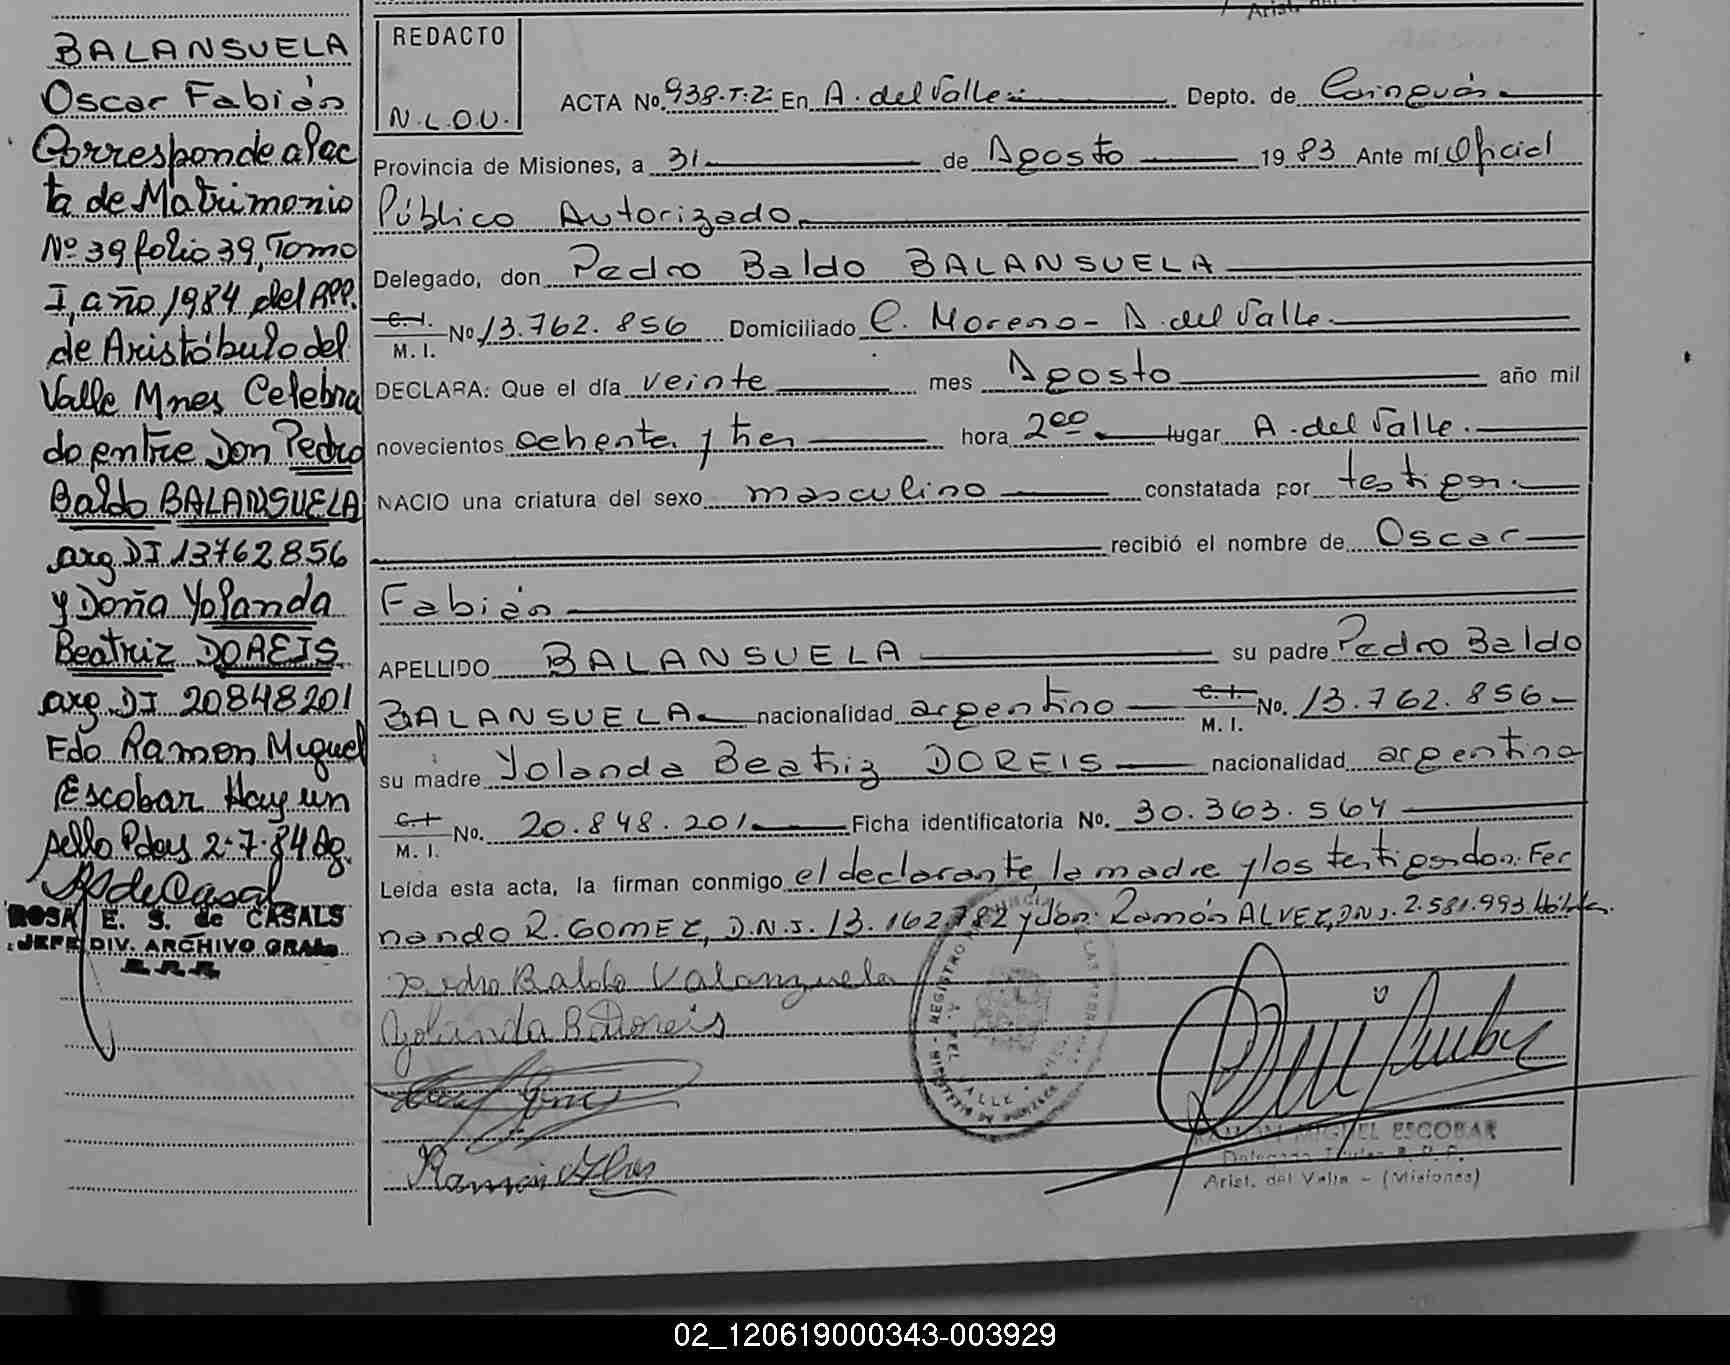 BALANSUELA
Oscar Fabián
Corresponde al ac
ta de Matrimonio
Nº 39 folio 39, Tomo
I, año 1984 del RPP.
de Aristóbulo del
Valle Mnes Celebra
do entre Don Pedro
Baldo BALANSUELA
arg DI 13762856
y Doña Yolanda
Beatriz DOREIS
arg DI 20848201
Fdo Ramon Miguel
Escobar Hay un
sello Pdas 2-7-84
ROSA E. S. de CASALS
JEFE DIV. ARCHIVO GRAL.
REDACTO
N.L.O.U.
ACTA No. 938.T:2: En A. del Valle Depto. de Cainguás
Provincia de Misiones, a 31 de Agosto 1983 Ante mí Oficial
Público Autorizado
Delegado, don Pedro Baldo BALANSUELA
C. I.
M. I. No 13.762.856 Domiciliado C. Moreno - A. del Valle
DECLARA: Que el día veinte mes Agosto año mil
novecientos ochenta y tres hora 2⁰⁰ lugar A. del Valle.
NACIO una criatura del sexo masculino constatada por testigos.
recibió el nombre de Oscar
Fabián
APELLIDO BALANSUELA su padre Pedro Baldo
BALANSUELA nacionalidad argentino C. I. M. I. No. 13.762.856
su madre Yolanda Beatriz DOREIS nacionalidad argentina
C. I. M. I. No. 20.848.201 Ficha identificatoria No. 30.363.564
Leída esta acta, la firman conmigo el declarante, la madre y los testigos don. Fer
nando R. GOMEZ, D.N.I. 13.162.782 y don. Ramón ALVEZ, D.N.I. 2.581.993
Pedro Baldo Valanzuela
Yolanda B Doreis
Ramon Alves
RAMON MIGUEL ESCOBAR
Delegado Titular R. P. P.
Arist. del Valle - (Misiones)
02_120619000343-003929